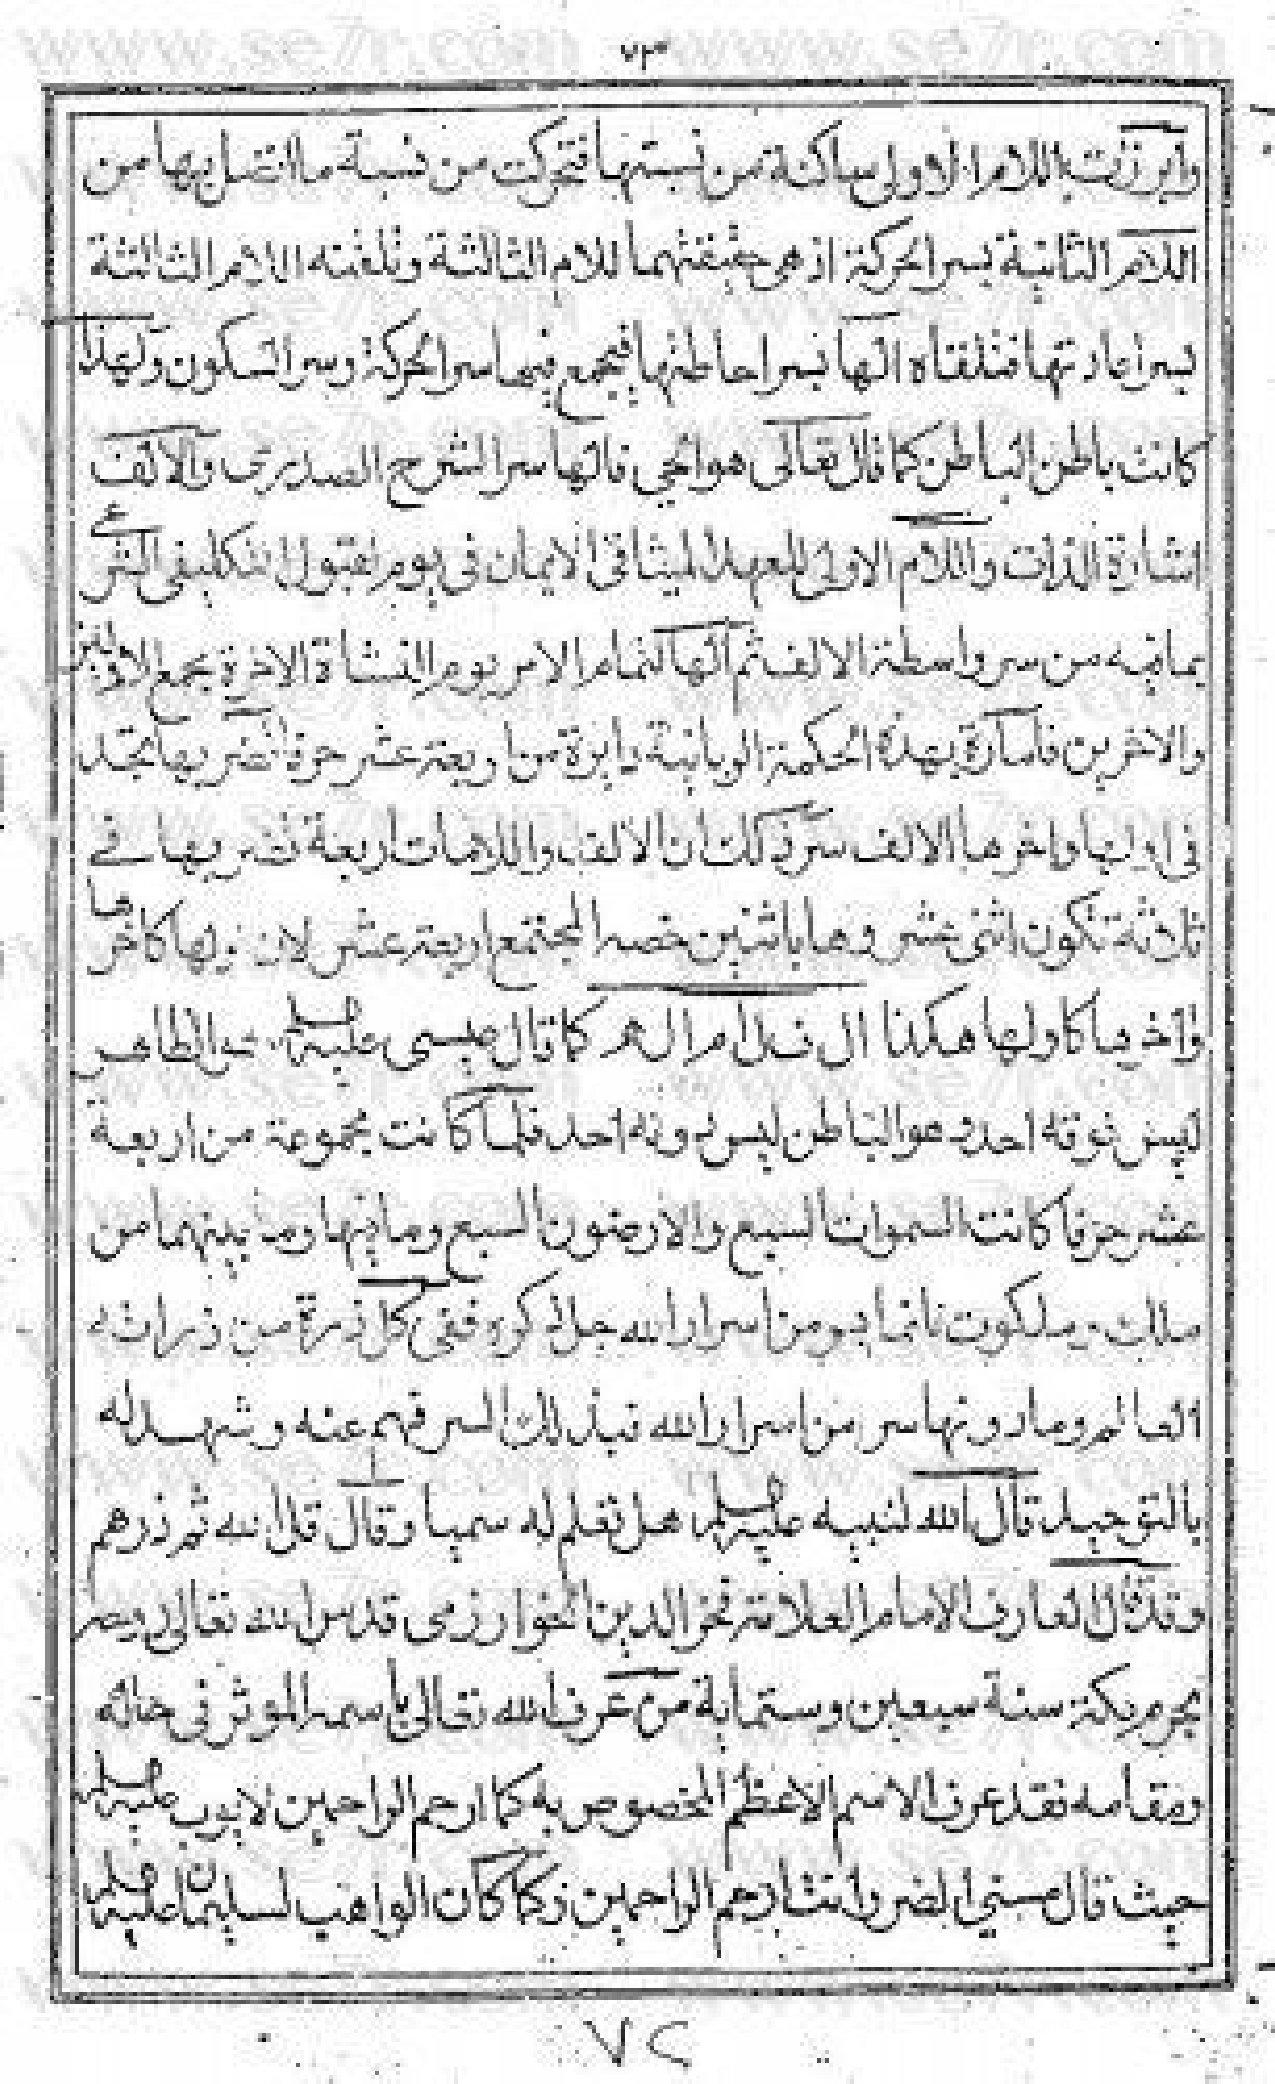 ٧٣
وابرزت اللام الاولى ساكنة من نسبتها فتحركت من نسبة ما اتصل بها من
اللام الثانية بسر الحركة اذ هو حقيقتهما للام الثالثة وتلقته اللام الثالثة
بسر اعادتها فتلقاه الها بسر احاطتها فيجمع فيها سر الحركة وسر السكون ولهذا
كانت باطن الباطن كما قال تعالى هو الحي فالها سر الشرح الصدري والالف
اشارة الذات واللام الاولى للعهد لميثاق الايمان في يوم لقبول التكليف الشرعي
بما فيه من سر واسطة الالف ثم الها لتمام الامر يوم النشاة الاخرة بجمع الاولين
والاخرين بهذه الحكمة من اربعة عشر حرفا تضربها تجد
في اولها واخرها الالف سر ذلك ان الالف واللامات اربعة تضربها في
ثلاثة تكون اثنى عشر وها باثنين خصه المجتمع اربعة عشر لان اولها كاخرها
واخرها كاولها هكذا ال ف ل ا م ال ه كما قال عيسى عليه الظاهر
ليس فوقه احد هو الباطن ليس دونه احد فلما كانت مجموعة من اربعة
عشر حرفا كانت السموات السبع والارضون السبع وما فيها وما بينهما من
ملك وملكوت من اسرار الله جل ذكره ففي كل ذرة من ذرات
العالم وما دونها سر من اسرار الله فبذلك السر فهم عنه وشهد له
بالتوحيد قال الله لنبيه عليه هل تعلم له سميا وقال قل الله ثم ذرهم
وقد قال العارف الامام العلامة فخر الدين الخوارزمي قدس الله تعالى روحه
بحرم مكة سنة سبعين وستماية من عرف الله تعالى باسمه الموثر في حاله
ومقامه فقد عرف الاسم الاعظم المخصوص به كما ارحم الراحمين لايوب عليه
حيث قال مسني الضر وانت ارحم الراحمين وكما كان الواهب لسليمان عليه
٧٢